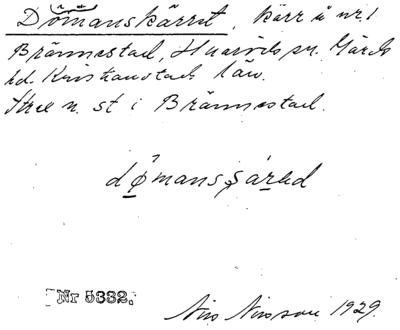 Dömanskärret, kärr å nr 1
Brännestad, Hvaröds sn. Gärds
hd. Kristianstads län.
n. st i Brännestad.
dømansʂäred
Nr 5332.
Nils Nilsson 1929.